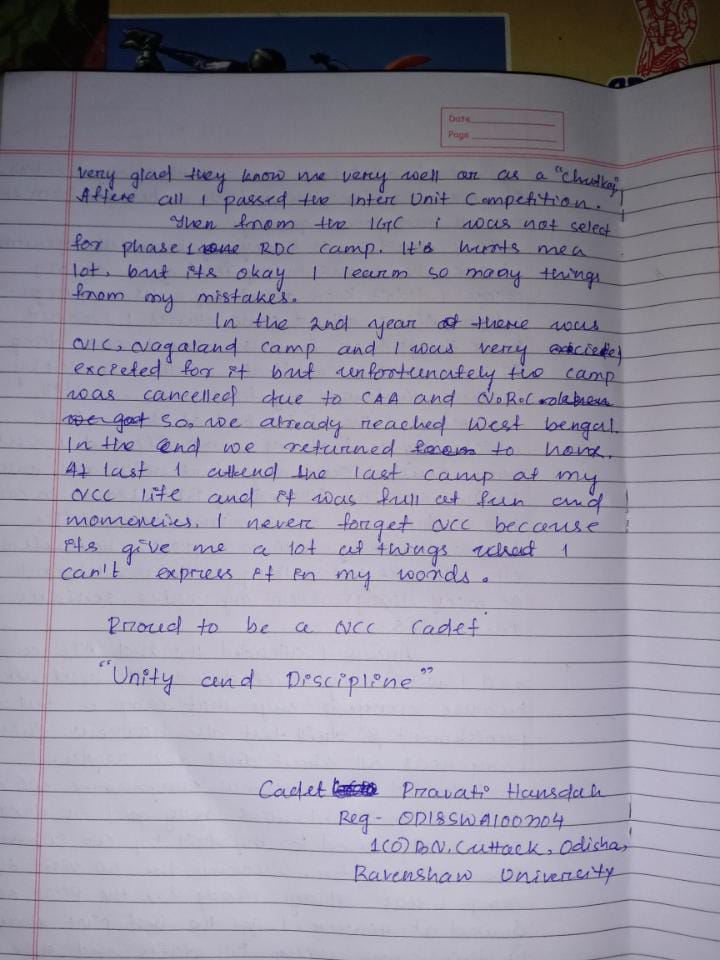 Date
Page
very glad they know me very well or as a "Chutkey"
Aftere all I passed the Inter Unit Competition.
Then from the IGC i was not select
for phase 1 one RDC camp. It's hurts me a
lot, but its okay I learn so many things
from my mistakes.
In the 2nd year there was
NIC, Nagaland camp and I was very
excieted for it but unfortunately the camp
was cancelled due to CAA and N.R.C.
so, we already reached West bengal.
In the end we returned to home.
At last I attend the last camp of my
NCC life and it was full of fun and
momories. I never forget NCC because
its give me a lot of things what I
can't express it in my words.
Proud to be a NCC Cadet
"Unity and Discipline"
Cadet Pravati Hansdah
Reg - OD18SWA100204
1(O) BN, Cuttack, Odisha,
Ravenshaw University